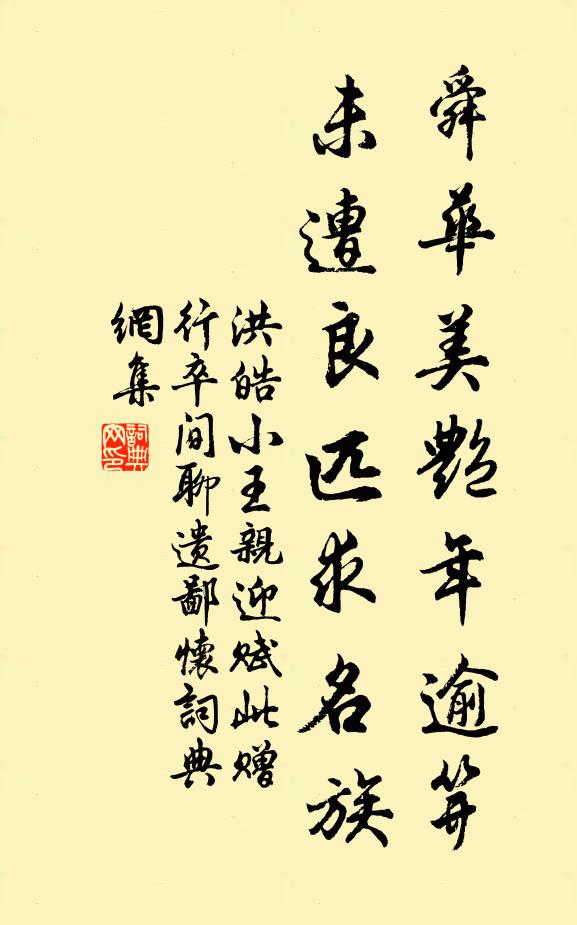 舜華美艷年逾笄
未遭良匹求名族
洪皓小王親迎赋此赠
行卒间聊遗鄙懷詞典
網集
詞典网印